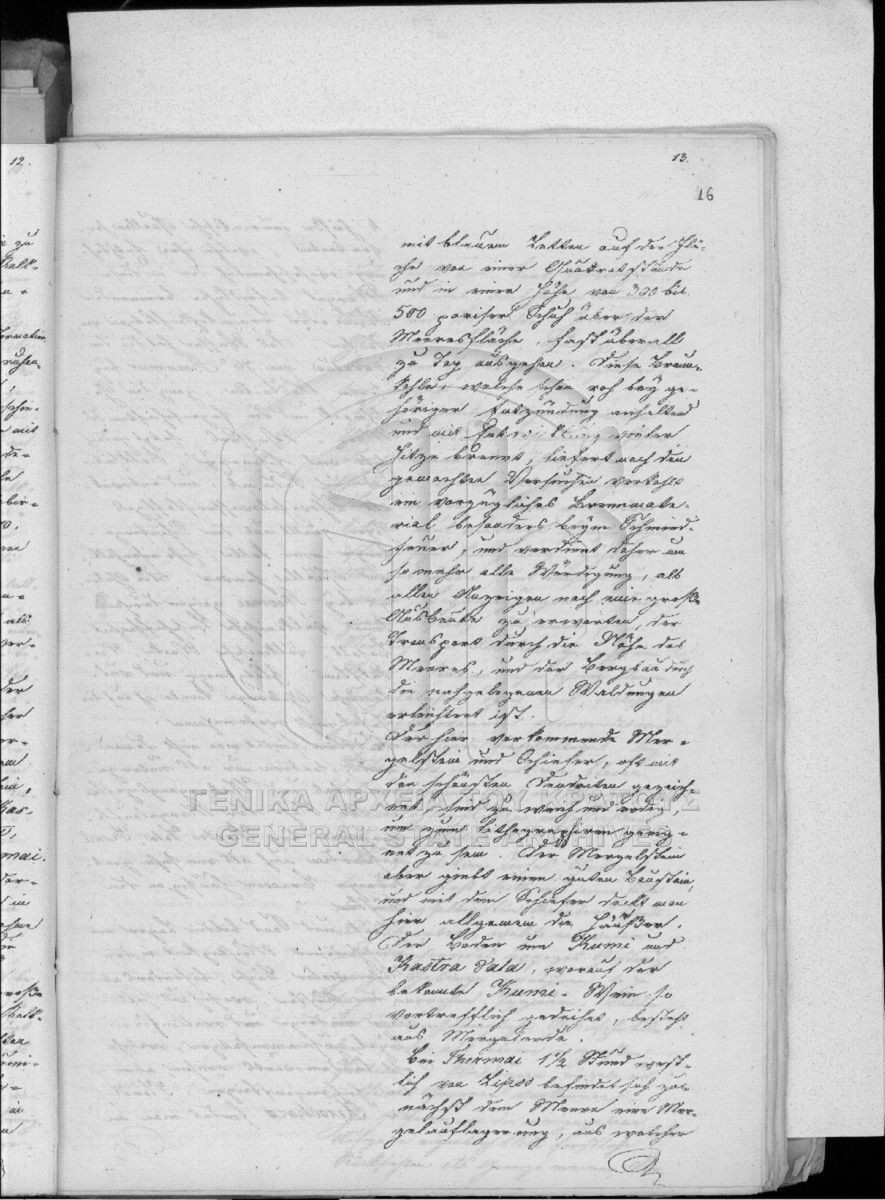 12.
13.
16
mit blauem Letten auf der Flä-
che von einer Quadratstunde
und in einer Höhe von 300 bis
500 pariser Schuh über der
Meeresfläche, fast überall
zu Tag ausgehen. Diese Braun-
kohle, welche schon roh bey ge-
höriger Entzündung anhaltend
und mit Entwicklung vieler
Hitze brennt, liefert nach den
gemachten Versuchen verkohlt
ein vorzügliches Brennmate-
rial besonders beym Schmied-
feuer, und verdient daher um
so mehr alle Würdigung, als
allen Anzeigen nach eine große
Ausbeute zu erwarten, der
Transport durch die Nähe des
Meeres, und der Bergbau durch
die nahgelegenen Waldungen
erleichtert ist.
Der hier vorkommende Mer-
gelstein und Schiefer, oft mit
den schönsten Dendriten gezeich-
net, sind zu weich und erdig,
um zum Lithographiren geeig-
net zu sein. Der Mergelstein
aber giebt einen guten Baustein,
und mit dem Schiefer deckt man
hier allgemein die Häußer.
Der Boden um Kumi und
Kastro Vala, worauf der
bekannte Kumi-Wein so
vortrefflich gedeihet, besteht
aus Mergelerde.
Bei Thermai 1½ Stund west-
lich von Lipso befindet sich zu-
nächst dem Meere eine Mer-
gelauflagerung, aus welcher
ΓΕΝΙΚΑ ΑΡΧΕΙΑ ΤΟΥ ΚΡΑΤΟΥΣ
GENERAL STATE ARCHIVES